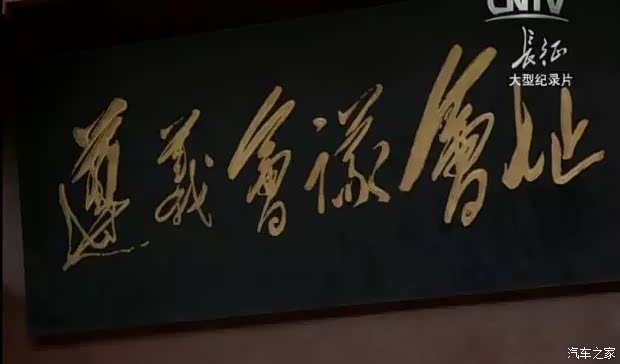 CNTV
長征
大型纪录片
遵義會議會址
汽车之家